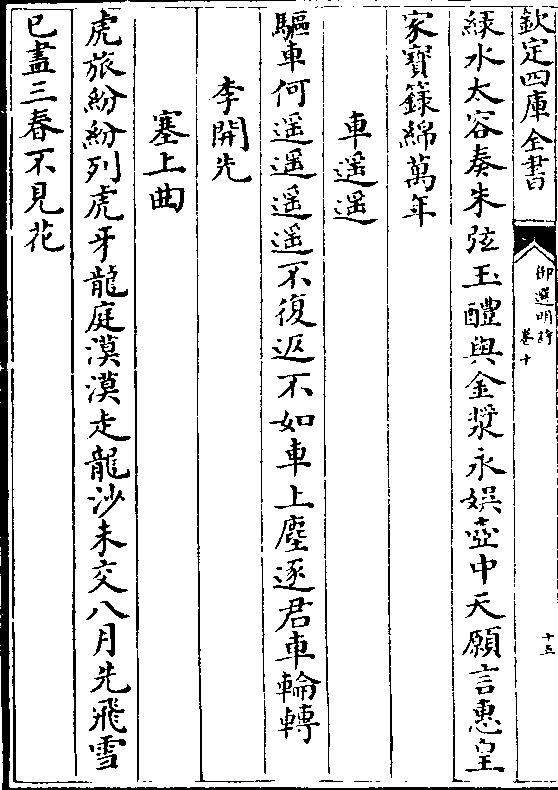 欽定四庫全書
御選明詩
卷十
十五
綠水太容奏朱弦玉醴與金漿永娯壺中天願言惠皇
家寶籙綿萬年
車遥遥
驅車何遥遥遥遥不復返不如車上塵逐君車輪轉
李開先
塞上曲
虎旅紛紛列虎牙龍庭漠漠走龍沙未交八月先飛雪
已盡三春不見花